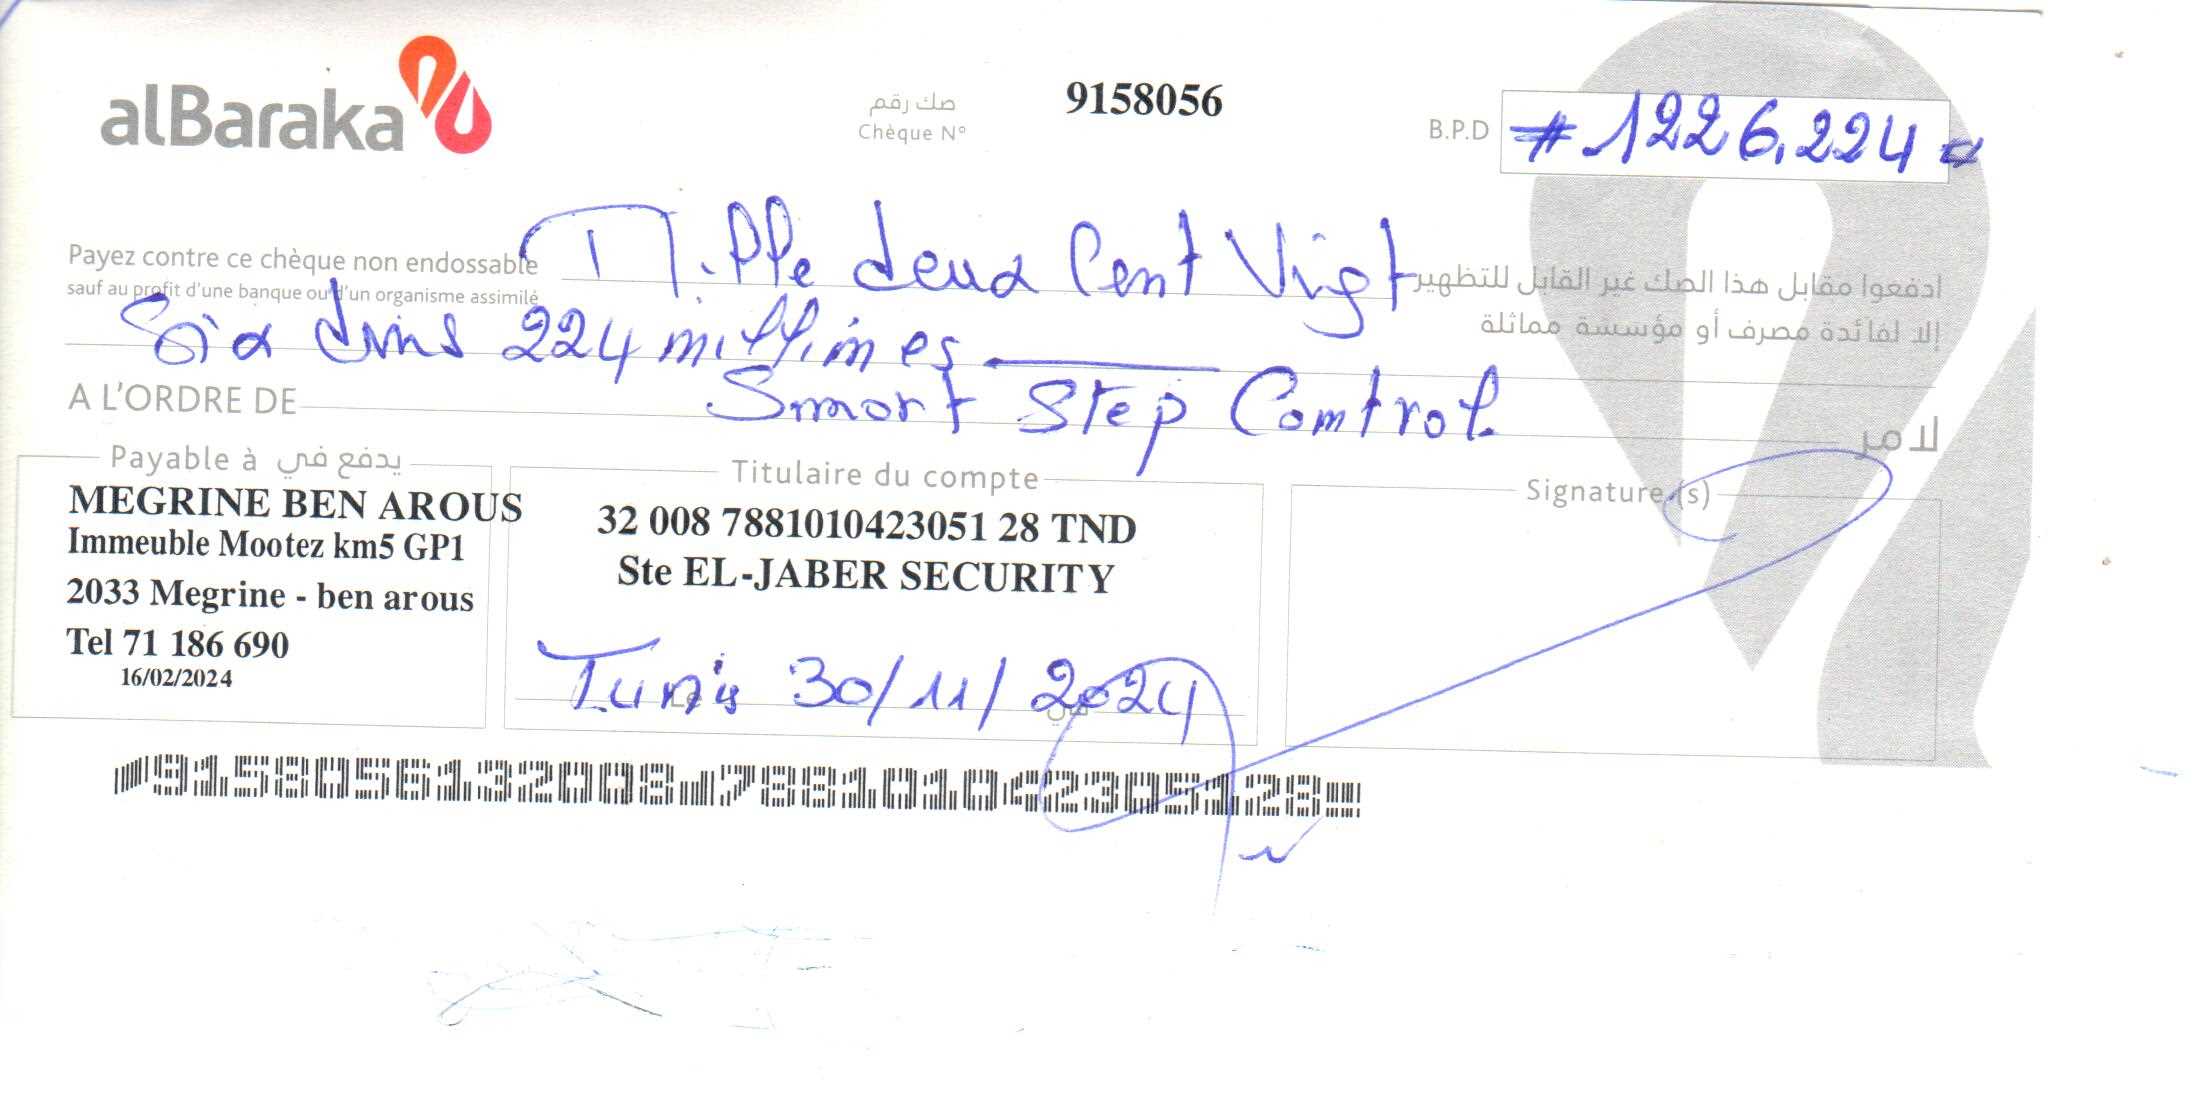 alBaraka
صك رقم
Chèque N°
9158056
B.P.D
# 1226,224 #
Payez contre ce chèque non endossable
sauf au profit d'une banque ou d'un organisme assimilé
Mille deux Cent Vigt
ادفعوا مقابل هذا الصك غير القابل للتظهير
إلا لفائدة مصرف أو مؤسسة مماثلة
Six dins 224 millimes
A L'ORDRE DE
Smart Step Comtrol.
لامر
Payable à يدفع في
MEGRINE BEN AROUS
Immeuble Mootez km5 GP1
2033 Megrine - ben arous
Tel 71 186 690
16/02/2024
Titulaire du compte
32 008 7881010423051 28 TND
Ste EL-JABER SECURITY
Tunis 30/11/2024
Signature (s)
9158056132008 788101042305128